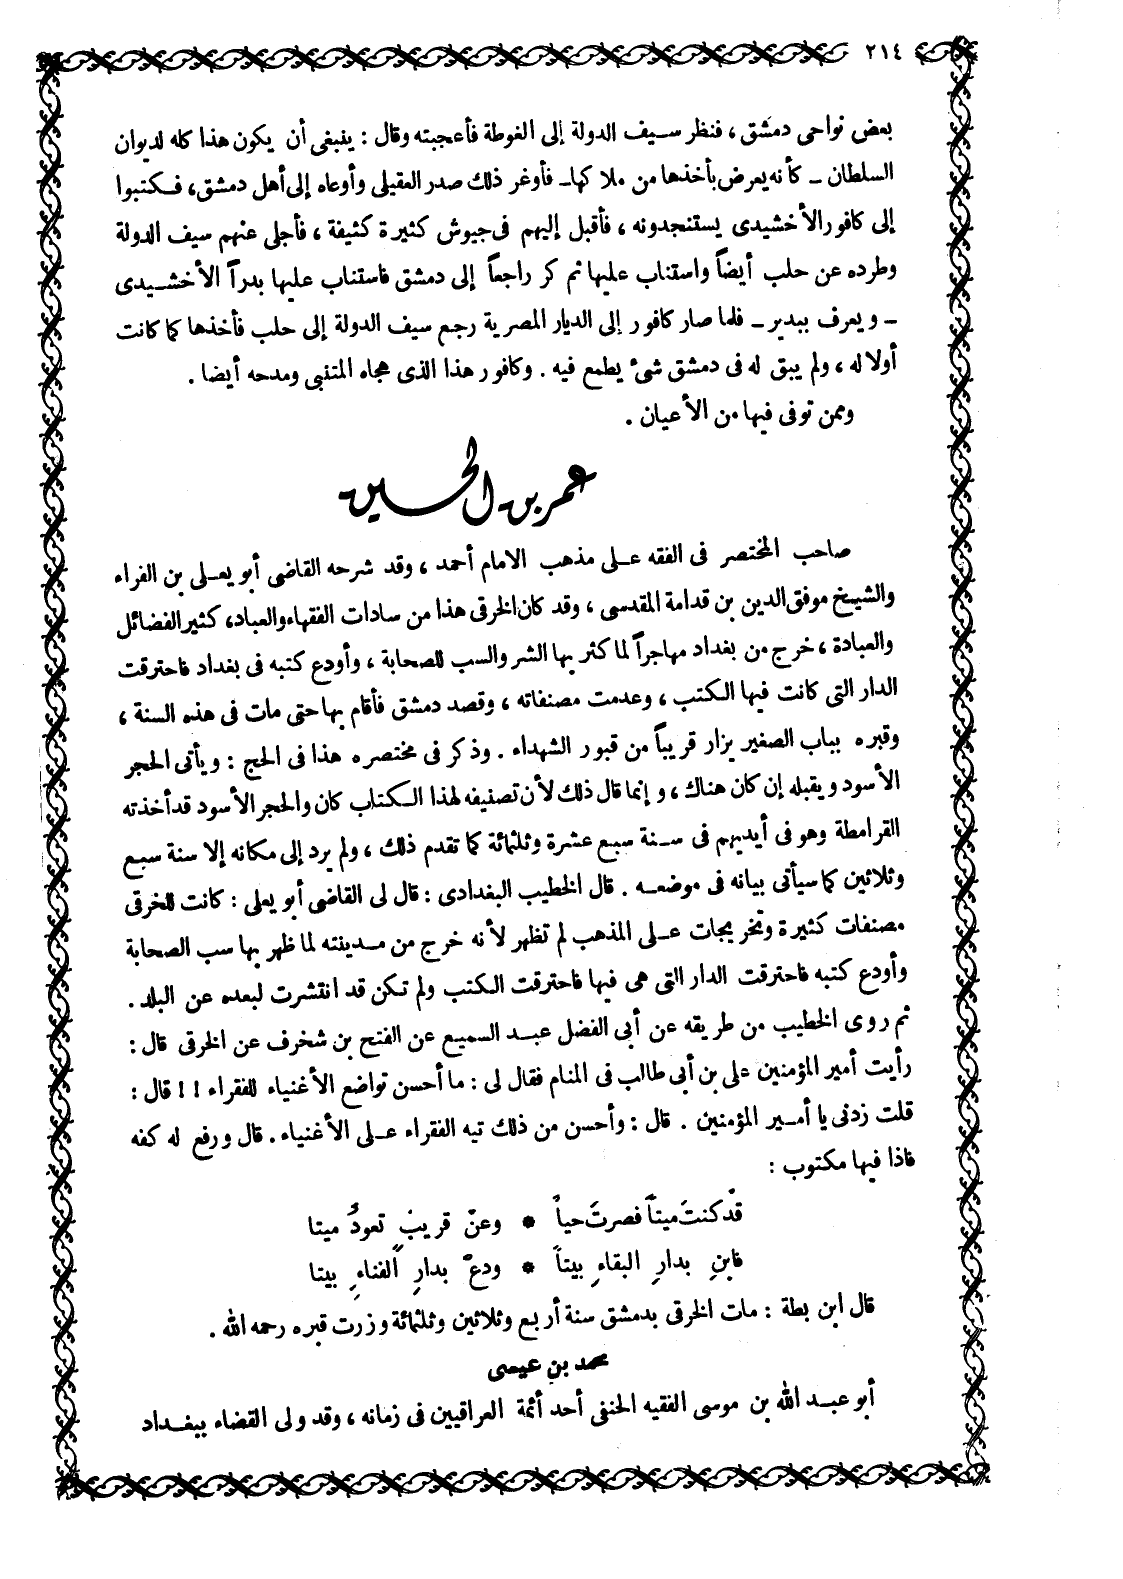 ٢١٤
بعض نواحى دمشق ، فنظر سيف الدولة إلى الغوطة فأعجبته وقال : ينبغى أن يكون هذا كله لديوان
السلطان ــ كأنه يعرض بأخذها من ملاكها ــ فأوغر ذلك صدر العقيلى وأوعاه إلى أهل دمشق ، فكتبوا
إلى كافور الأخشيدى يستنجدونه ، فأقبل إليهم فى جيوش كثيرة كثيفة ، فأجلى عنهم سيف الدولة
وطرده عن حلب أيضاً واستناب عليها ثم كر راجعاً إلى دمشق فاستناب عليها بدراً الأخشيدى
ــ ويعرف ببدير ــ فلما صار كافور إلى الديار المصرية رجع سيف الدولة إلى حلب فأخذها كما كانت
أولا له ، ولم يبق له فى دمشق شئ يطمع فيه . وكافور هذا الذى هجاه المتنبى ومدحه أيضا .
وممن توفى فيها من الأعيان .
عمر بن الحسين
صاحب المختصر فى الفقه على مذهب الامام أحمد ، وقد شرحه القاضى أبو يعلى بن الفراء
والشيخ موفق الدين بن قدامة المقدسى ، وقد كان الخرقى هذا من سادات الفقهاء والعباد، كثير الفضائل
والعبادة ، خرج من بغداد مهاجراً لما كثر بها الشر والسب للصحابة ، وأودع كتبه فى بغداد فاحترقت
الدار التى كانت فيها الكتب ، وعدمت مصنفاته ، وقصد دمشق فأقام بها حتى مات فى هذه السنة ،
وقبره بباب الصغير يزار قريباً من قبور الشهداء . وذكر فى مختصره هذا فى الحج : ويأتى الحجر
الأسود ويقبله إن كان هناك ، وإنما قال ذلك لأن تصنيفه لهذا الكتاب كان والحجر الأسود قد أخذته
القرامطة وهو فى أيديهم فى سنة سبع عشرة وثلثمائة كما تقدم ذلك ، ولم يرد إلى مكانه إلا سنة سبع
وثلاثين كما سيأتى بيانه فى موضعه . قال الخطيب البغدادى : قال لى القاضى أبو يعلى : كانت للخرقى
مصنفات كثيرة وتخريجات على المذهب لم تظهر لأنه خرج من مدينته لما ظهر بها سب الصحابة
وأودع كتبه فاحترقت الدار التى هى فيها فاحترقت الكتب ولم تكن قد انتشرت لبعده عن البلد .
ثم روى الخطيب من طريقه عن أبى الفضل عبد السميع عن الفتح بن شخرف عن الخرقى قال :
رأيت أمير المؤمنين على بن أبى طالب فى المنام فقال لى : ما أحسن تواضع الأغنياء للفقراء ! ! قال :
قلت زدنى يا أمير المؤمنين . قال : وأحسن من ذلك تيه الفقراء على الأغنياء . قال ورفع له كفه
فاذا فيها مكتوب :
قدْ كنتَ ميتاً فصرتَ حياً * وعنْ قريبٍ تعودُ ميتا
فابنِ بدارِ البقاءِ بيتاً * ودعْ بدارِ الفناءِ بيتا
قال ابن بطة : مات الخرقى بدمشق سنة أربع وثلاثين وثلثمائة وزرت قبره رحمه الله .
محمد بن عيسى
أبو عبد الله بن موسى الفقيه الحنفى أحد أئمة العراقيين فى زمانه ، وقد ولى القضاء ببغداد